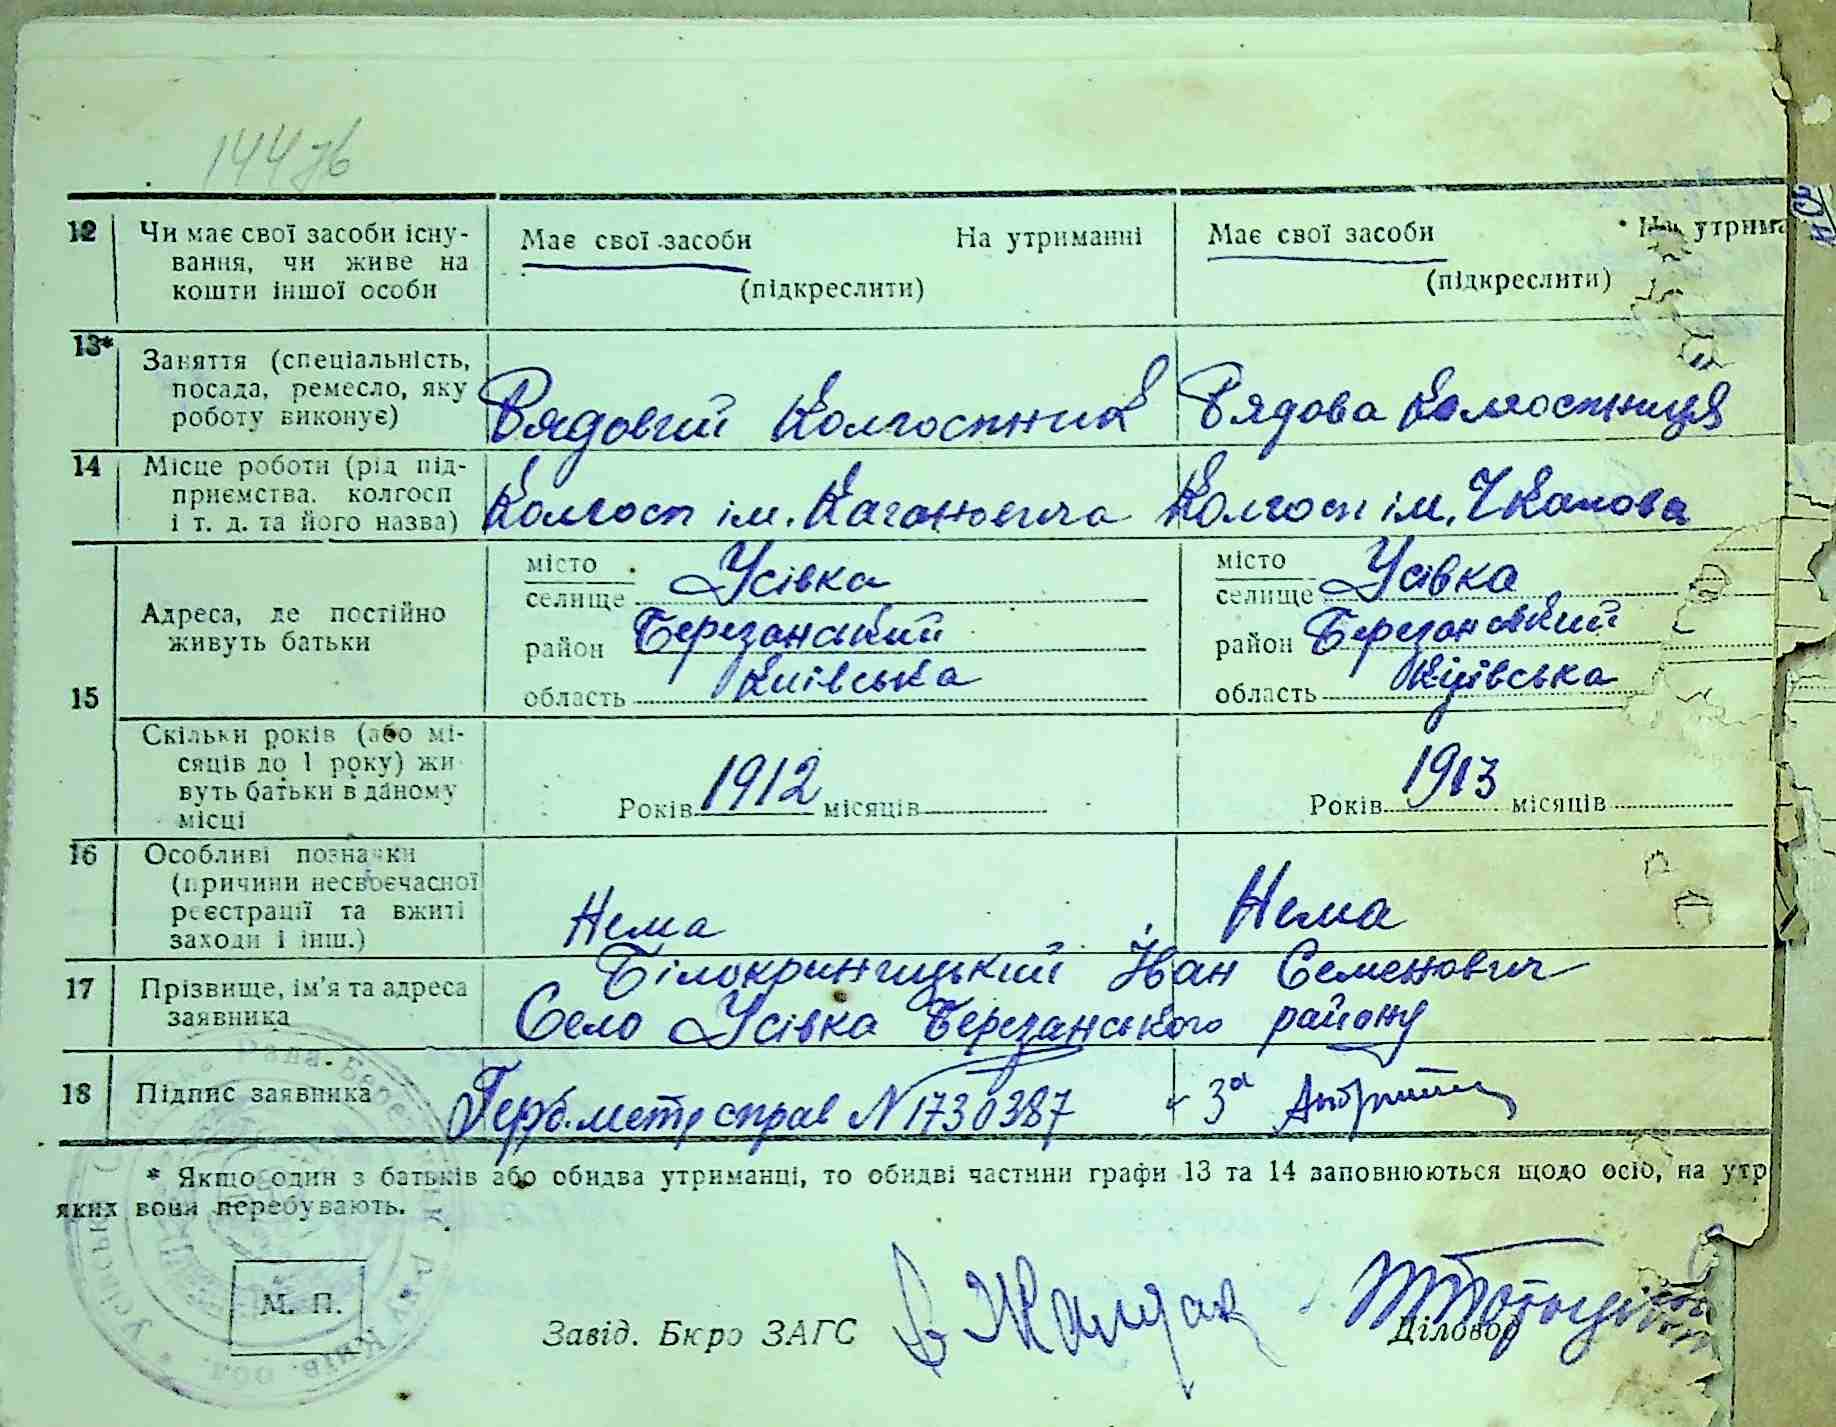 144
12 Чи має свої засоби існу- Має свої засоби На утриманні Має свої засоби На утрима
вання, чи живе на
кошти іншої особи (підкреслити) (підкреслити)
13* Заняття (спеціальність,
посада, ремесло, яку
роботу виконує) Рядовий Колгоспник Рядова Колгоспниця
14 Місце роботи (рід під-
приємства, колгосп
і т. д. та його назва) Колгосп ім. Кагановича Колгосп ім. Чкалова
15 Адреса, де постійно
живуть батьки
місто Усівка місто Усівка
селище селище
район Березанський район Березанський
область Київська область Київська
Скільки років (або мі-
сяців до 1 року) жи-
вуть батьки в даному
місці Років 1912 місяців Років 1913 місяців
16 Особливі позначки
(причини несвоєчасної
реєстрації та вжиті
заходи і інш.) Нема Нема
17 Прізвище, ім'я та адреса Білокриницький Іван Семенович
заявника Село Усівка Березанського району
18 Підпис заявника справ N 1730387 За
* Якщо один з батьків або обидва утриманці, то обидві частини графи 13 та 14 заповнюються щодо осіб, на утр
яких вони перебувають.
М. П.
Завід. Бюро ЗАГС Діловод